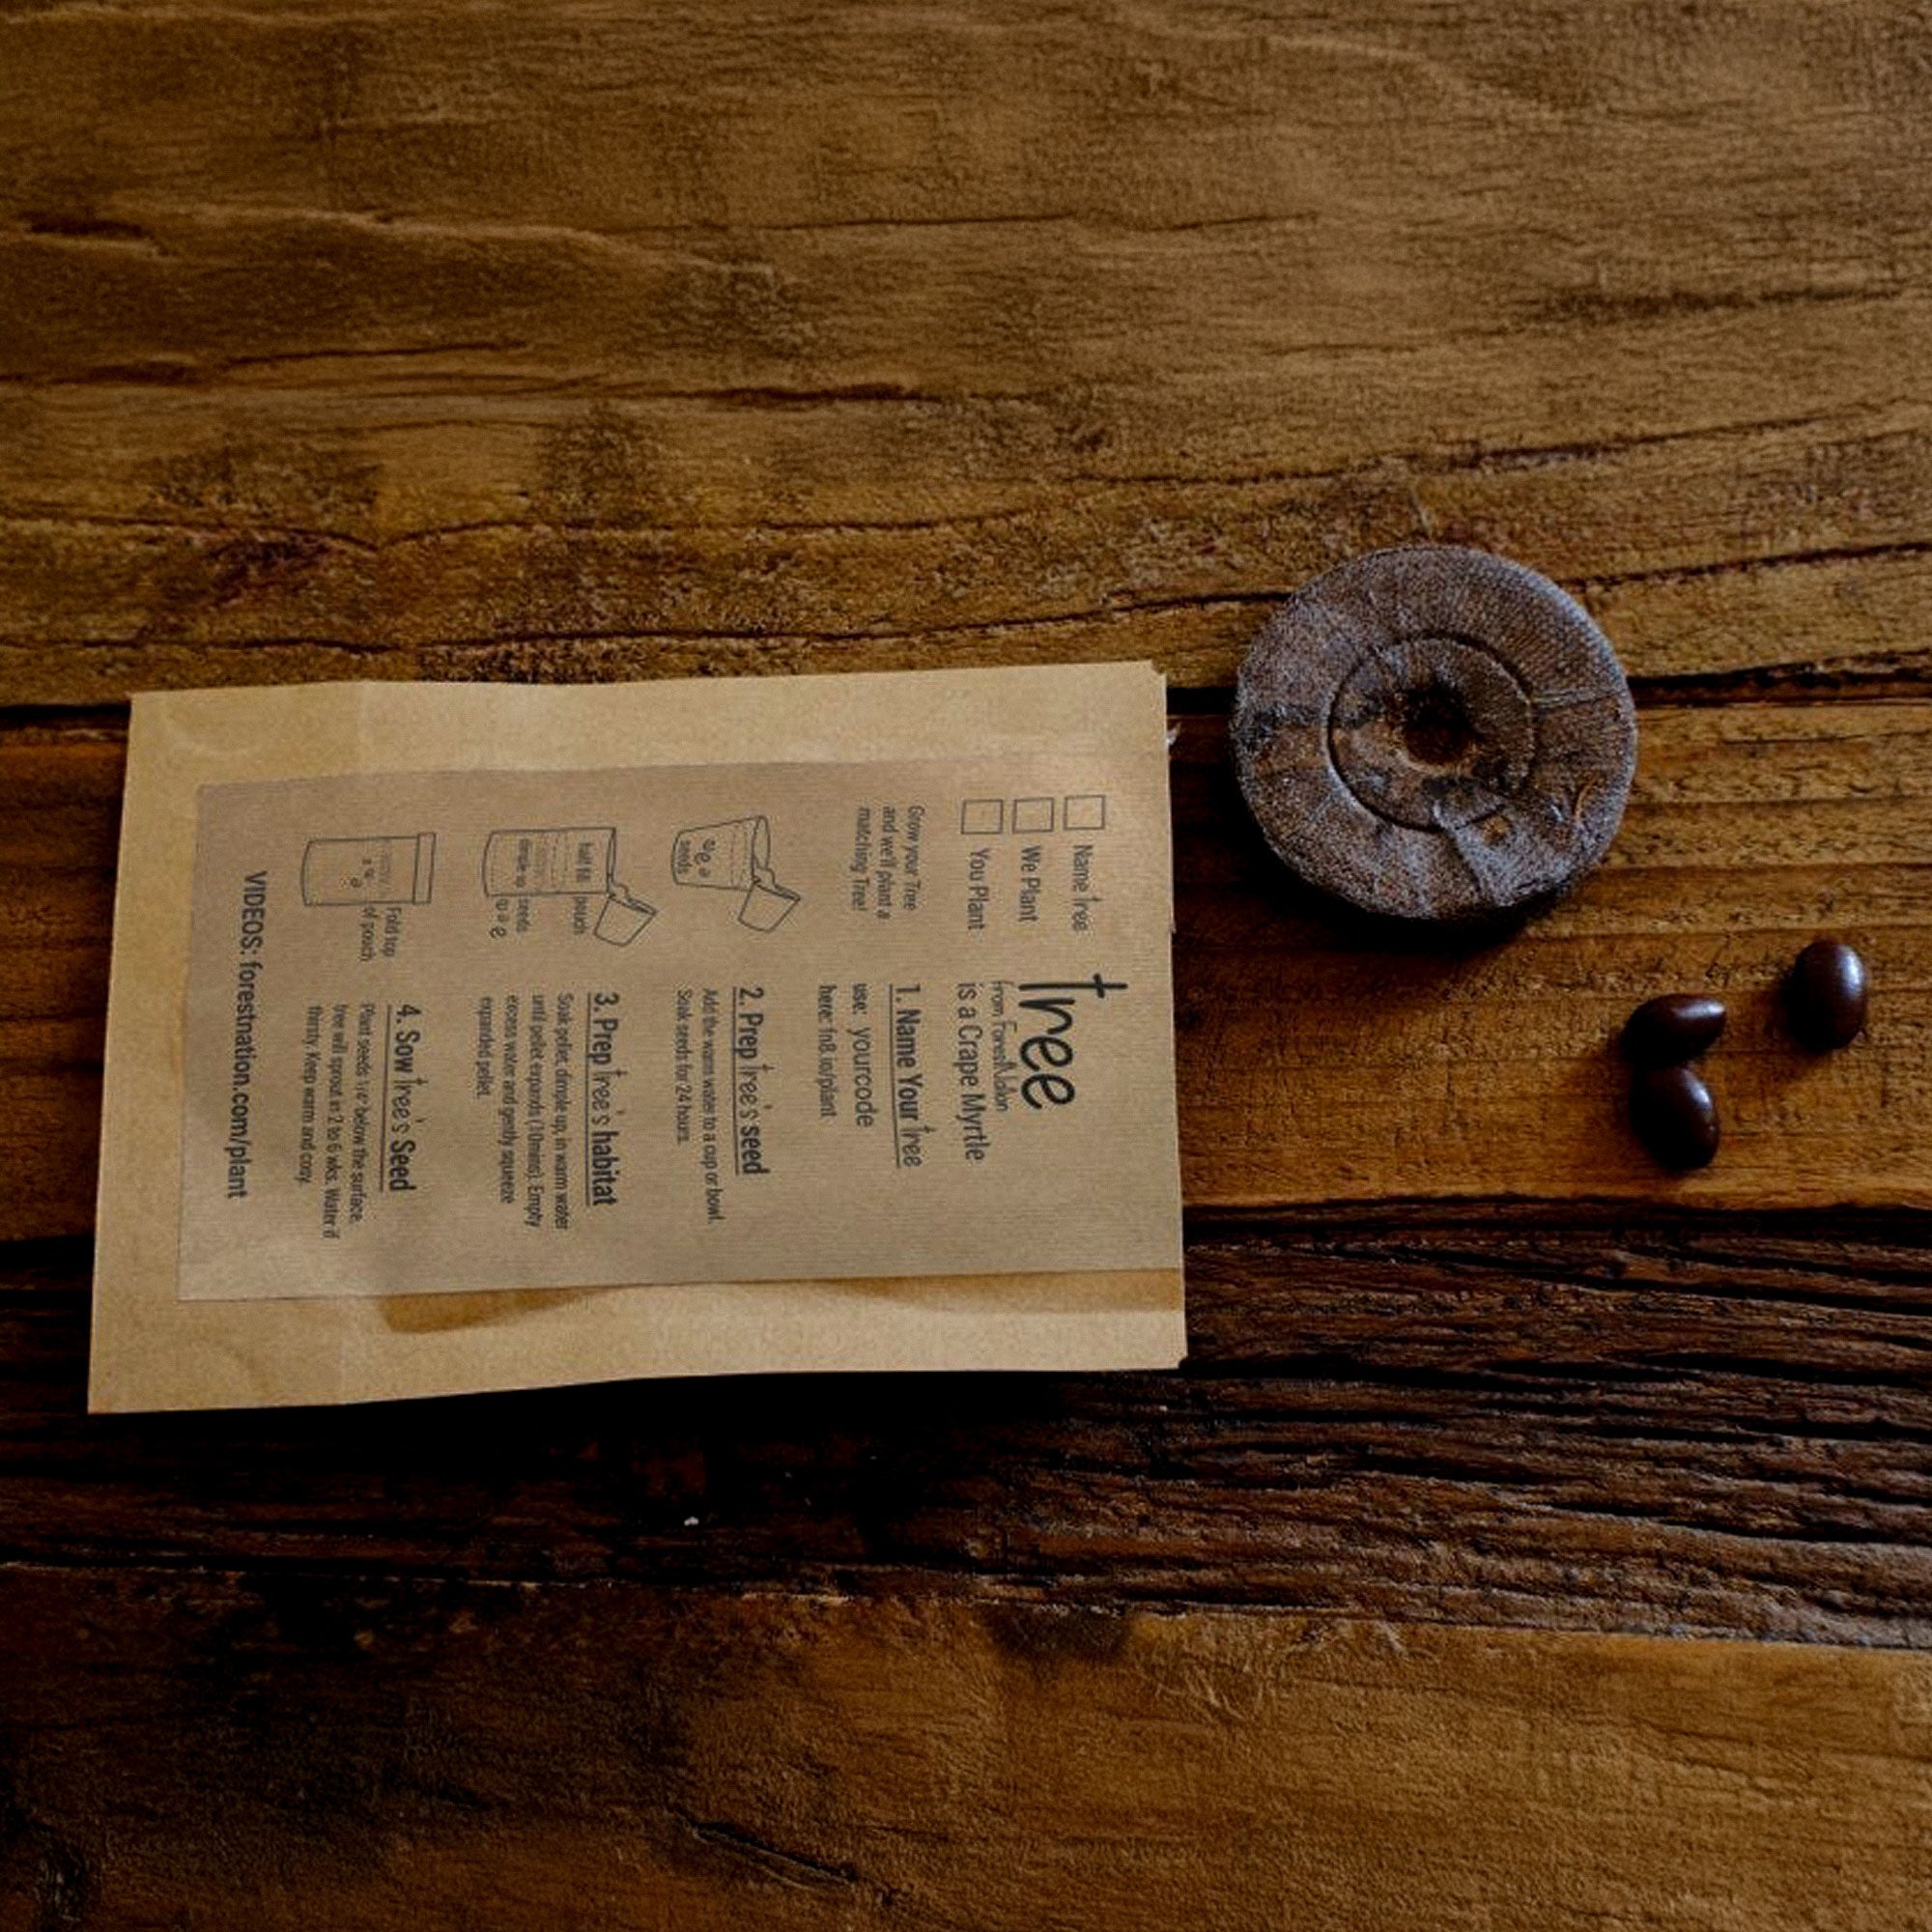 Name Tree
We Plant
You Plant
Grow your Tree
and we'll plant a
matching Tree!
Tree
from ForestNation
is a Crape Myrtle
1. Name Your Tree
use: yourcode
here: fn8.io/plant
seeds
2. Prep Tree's seed
Add the warm water to a cup or bowl.
Soak seeds for 24 hours.
half fill pouch
dimple-up seeds
3. Prep Tree's habitat
Soak pellet, dimple up, in warm water
until pellet expands (10mins). Empty
excess water and gently squeeze
expanded pellet.
Fold top
of pouch
4. Sow Tree's Seed
Plant seeds 1/4" below the surface.
Tree will sprout in 2 to 6 wks. Water if
thirsty. Keep warm and cozy.
VIDEOS: forestnation.com/plant